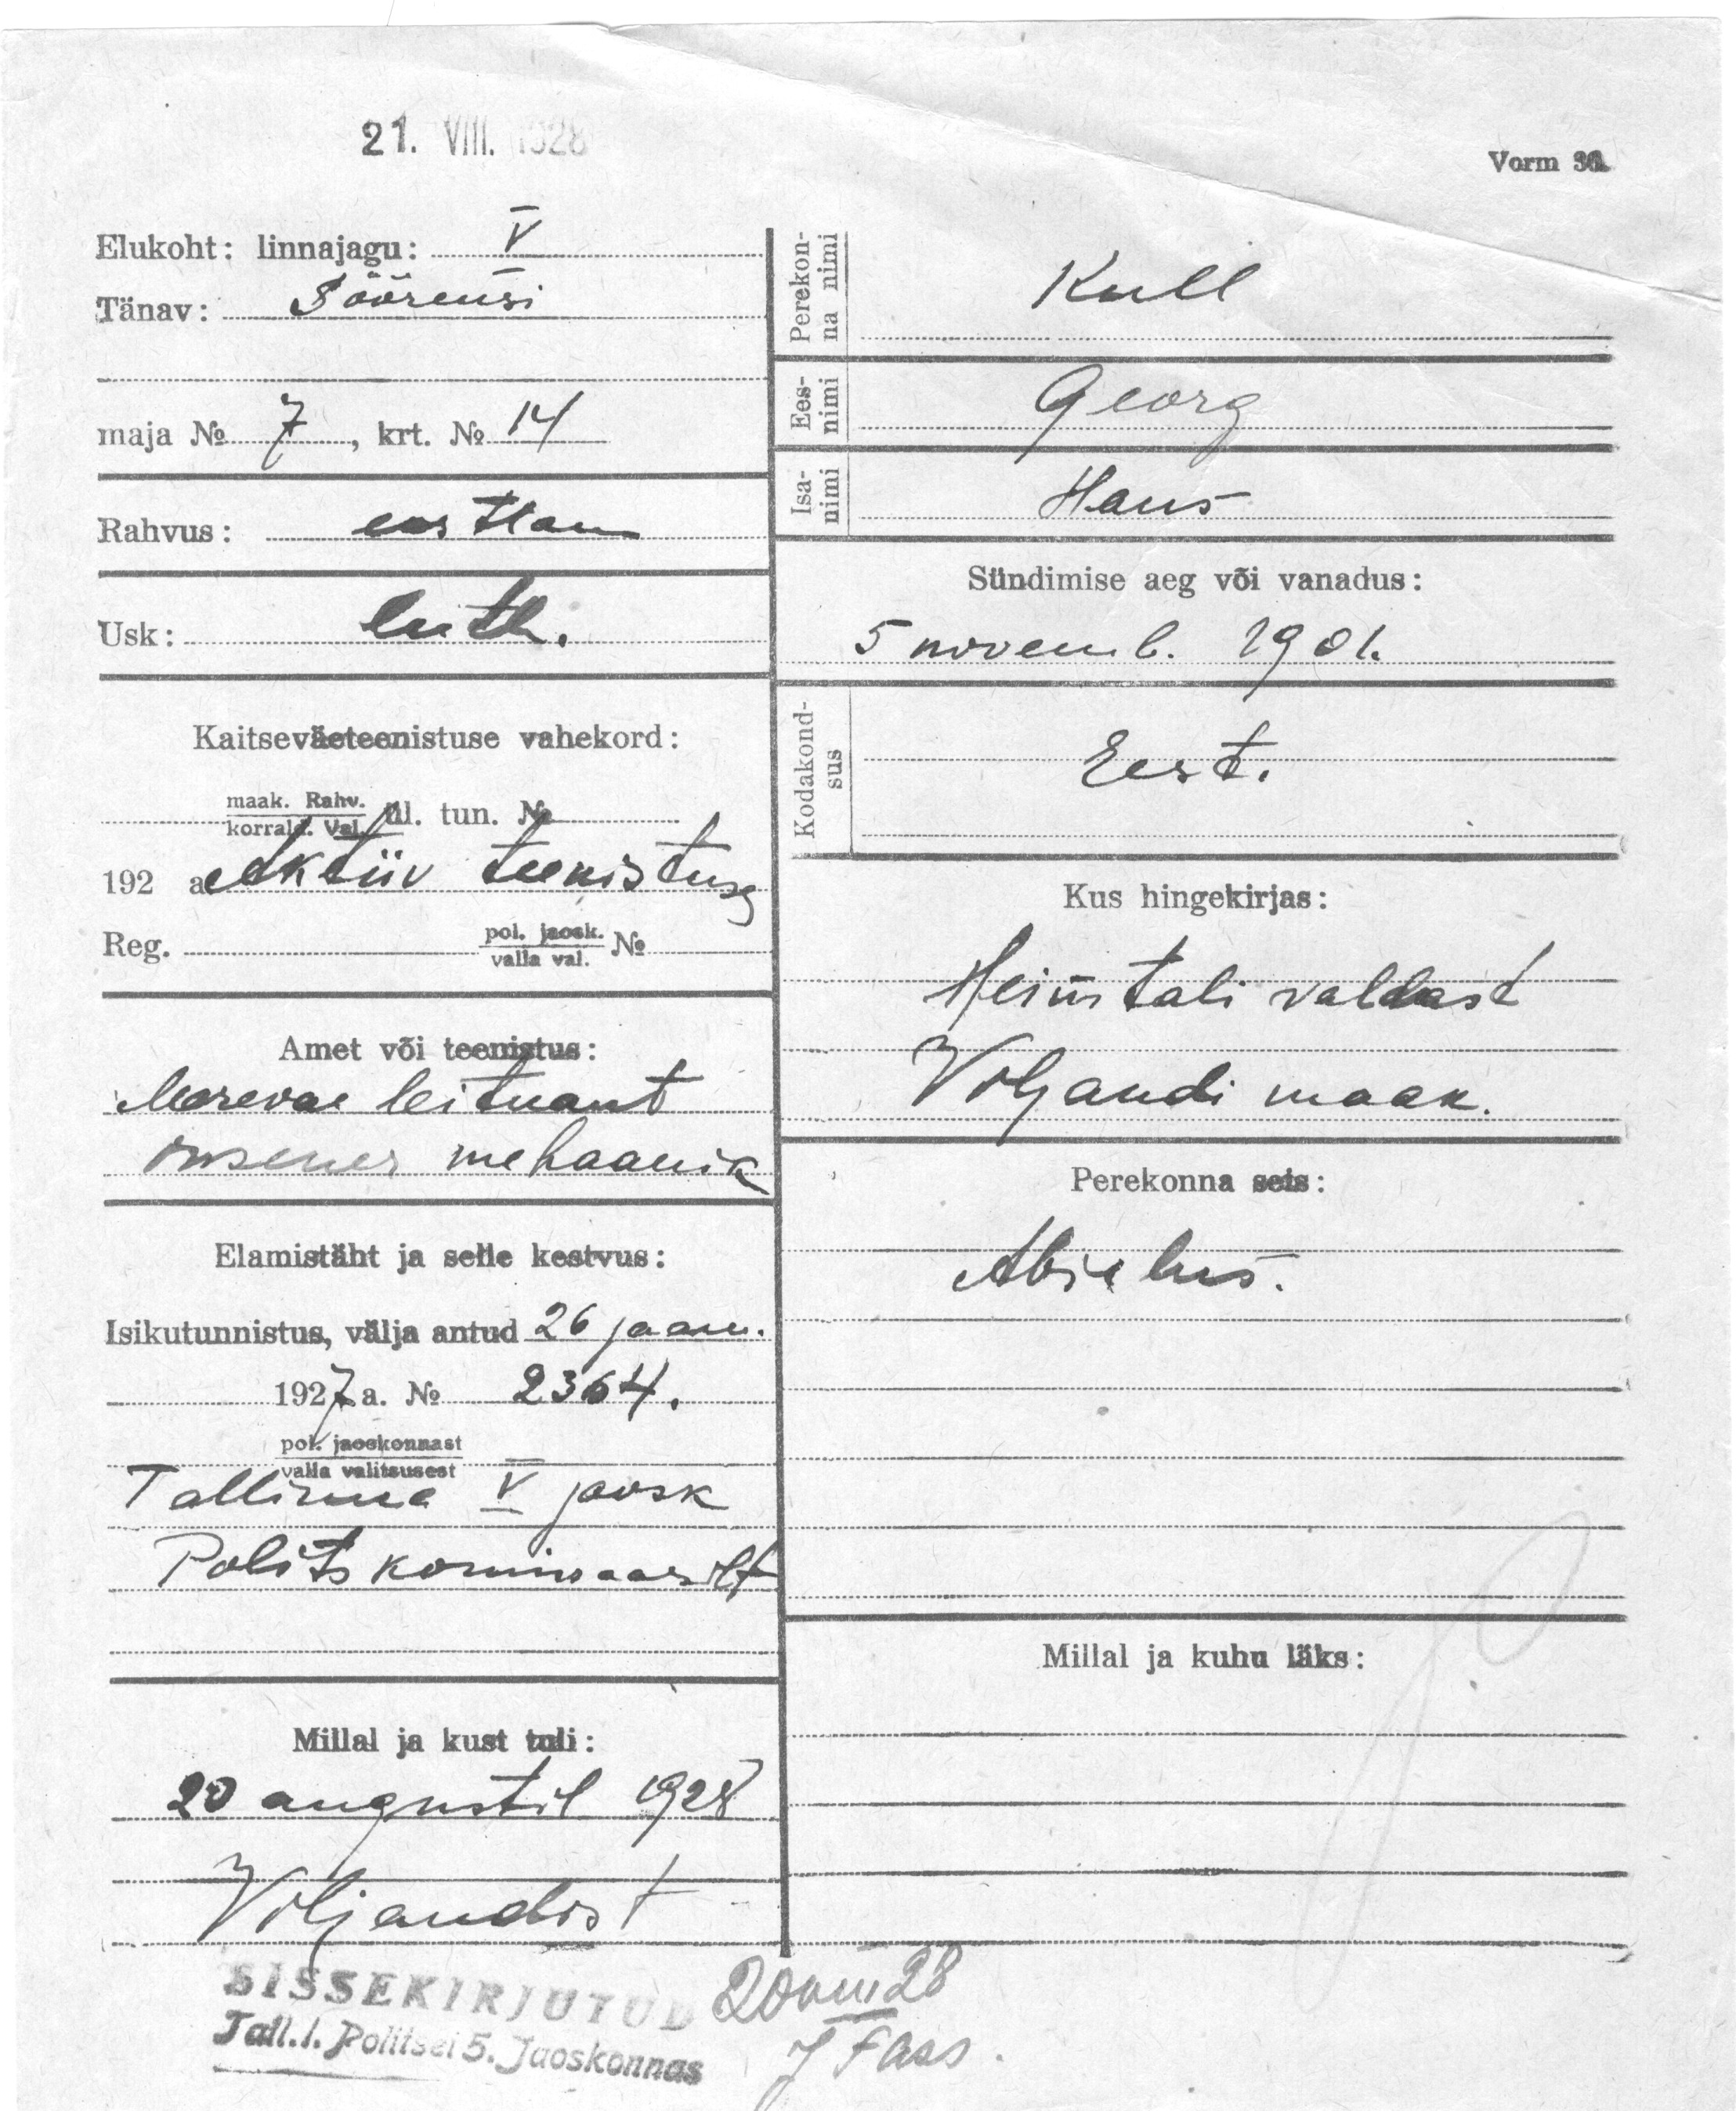 21. VIII. 1928
Vorm 30.
Elukoht: linnajagu: V
Tänav: Söörensi
maja № 7, krt. № 14
Rahvus: eestlane
Usk: luth.
Kaitseväeteenistuse vahekord:
maak. Rahv.
korrald. Val. ül. tun. №
192 a Aktiiv teenistuses
Reg. pol. jaosk. №
valla val.
Amet või teenistus:
Merevae leitnant
insener mehaanik
Elamistäht ja selle kestvus:
Isikutunnistus, välja antud 26 jaan.
1927 a. № 2364.
pol. jaoskonnast
valla valitsusest
Tallinna V jaosk
Polits komissaarilt
Millal ja kust tuli:
20 augustil 1928
Viljandist
Perekonna nimi
Kull
Eesnimi
Georg
Isanimi
Hans
Sündimise aeg või vanadus:
5 novemb. 1901.
Kodakondsus
Eest.
Kus hingekirjas:
Heimtali vallast
Viljandi maak.
Perekonna seis:
Abielus.
Millal ja kuhu läks:
SISSEKIRJUTUD 20 VIII 28
Tall. l. Politsei 5. Jaoskonnas